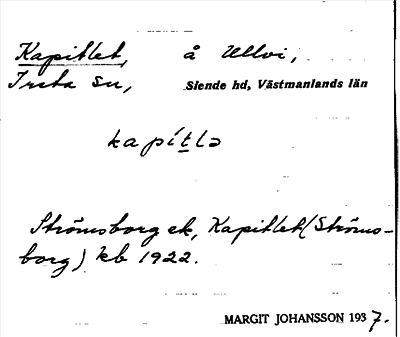 Kapitlet, å Ullvi,
Irsta sn, Siende hd, Västmanlands län
kapít̲lə
Strömsborg ek, Kapitlet (Ströms-
borg) kb 1922.
MARGIT JOHANSSON 1937.